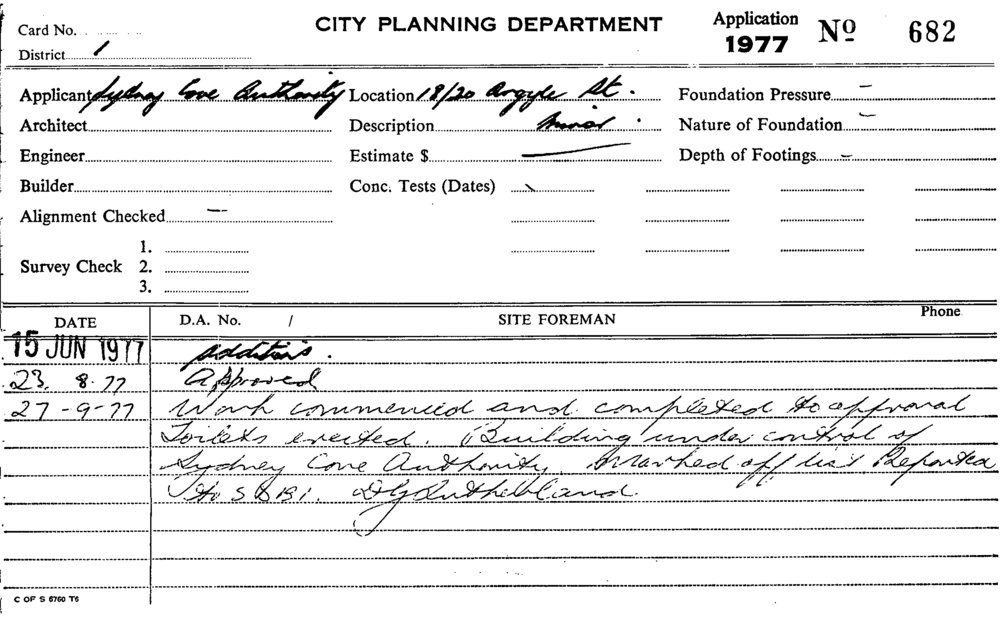 CITY PLANNING DEPARTMENT
Application 1977 Nº 682
Card No.
District 1
Applicant Sydney Cove Authority Location 18/20 Argyle St. Foundation Pressure –
Architect Description Minor. Nature of Foundation –
Engineer Estimate $ — Depth of Footings –
Builder Conc. Tests (Dates)
Alignment Checked –
Survey Check 1.
2.
3.
DATE D.A. No. / SITE FOREMAN Phone
15 JUN 1977 additions.
23. 8.77 Approved
27-9-77 Work commenced and completed to approval
Toilets erected. Building under control of
Sydney Cove Authority. Marked off list Reported
to S.B.I.
C OF S 6760 T6